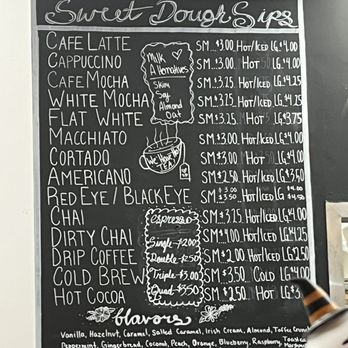 Sweet Dough Sips
CAFE LATTE SM. $3.00 Hot/Iced LG. $4.00
CAPPUCCINO SM. $3.00 Hot LG. $4.00
CAFE MOCHA SM. $3.25 Hot/Iced LG. $4.25
WHITE MOCHA SM. $3.25 Hot/Iced LG. $4.25
FLAT WHITE SM. $3.25 Hot LG. $3.75
MACCHIATO SM. $3.00 Hot/Iced LG. $4.00
CORTADO SM. $3.00 Hot LG. $4.00
AMERICANO SM. $2.50 Hot/Iced LG. $3.50
RED EYE / BLACK EYE SM. $3.00 $3.50 Hot/Iced LG. $4.00 $4.50
CHAI SM. $3.25 Hot/Iced LG. $4.25
DIRTY CHAI SM. $4.00 Hot/Iced LG.
DRIP COFFEE SM. $2.50 Hot LG.
COLD BREW SM. $3.50 Cold LG. $4.00
HOT COCOA SM. $2.50 Hot LG.
Milk
Alternatives
Skim
Soy
Almond
Oat
We
TEA!
Espresso
Single $2.00
Double $2.50
Triple $3.00
Quad $3.50
flavors
Vanilla, Hazelnut, Caramel, Salted Caramel, Irish Cream, Almond, Toffee Crunch
Peppermint, Gingerbread, Coconut, Peach, Orange, Blueberry, Raspberry, Toasted